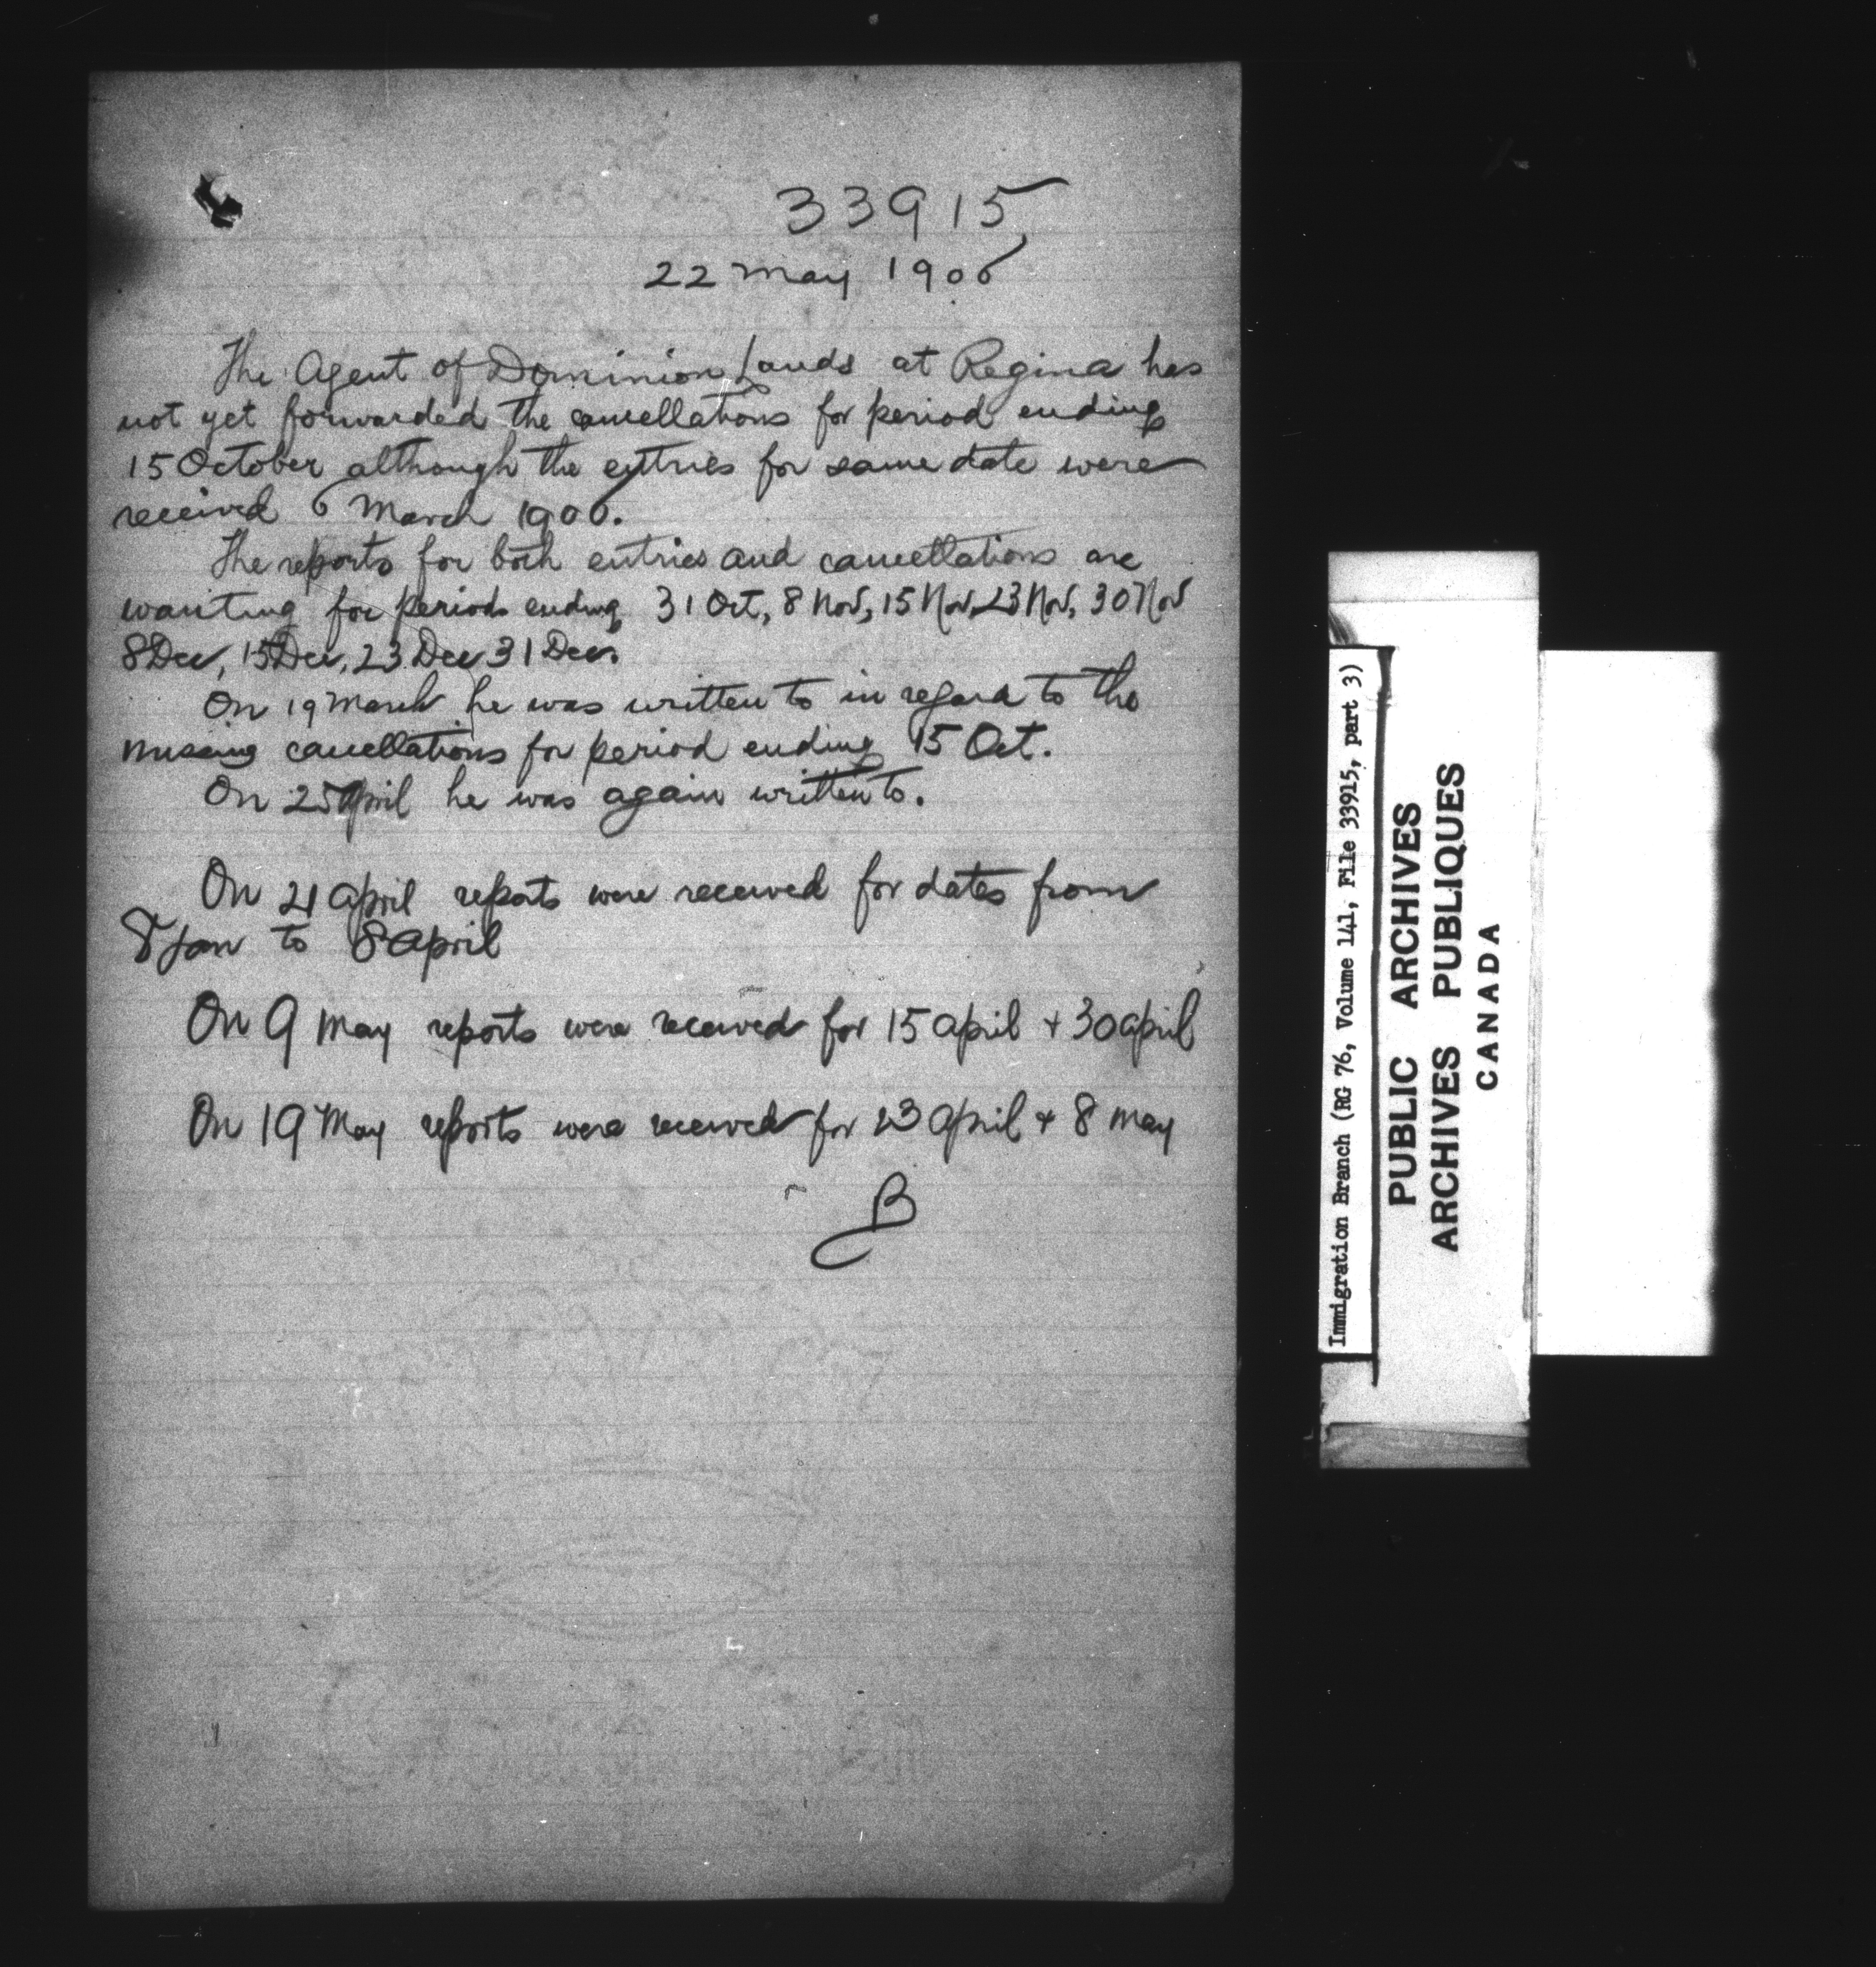 33915
22 May 1906
The Agent of Dominion Lands at Regina has
not yet forwarded the cancellations for period ending
15 October although the entries for same date were
received 6 March 1906.
The reports for both entries and cancellations are
wanting for periods ending 31 Oct, 8 Nov, 15 Nov, 23 Nov, 30 Nov
8 Dec, 15 Dec, 23 Dec 31 Dec.
On 19 March he was written to in regard to the
missing cancellations for period ending 15 Oct.
On 25 April he was again written to.
On 21 April reports were received for dates from
8 Jan to 8 April
On 9 May reports were received for 15 April + 30 April
On 19 May reports were received for 23 April + 8 May
B
Immigration Branch (RG 76, Volume 141, File 33915, part 3)
PUBLIC ARCHIVES
ARCHIVES PUBLIQUES
CANADA